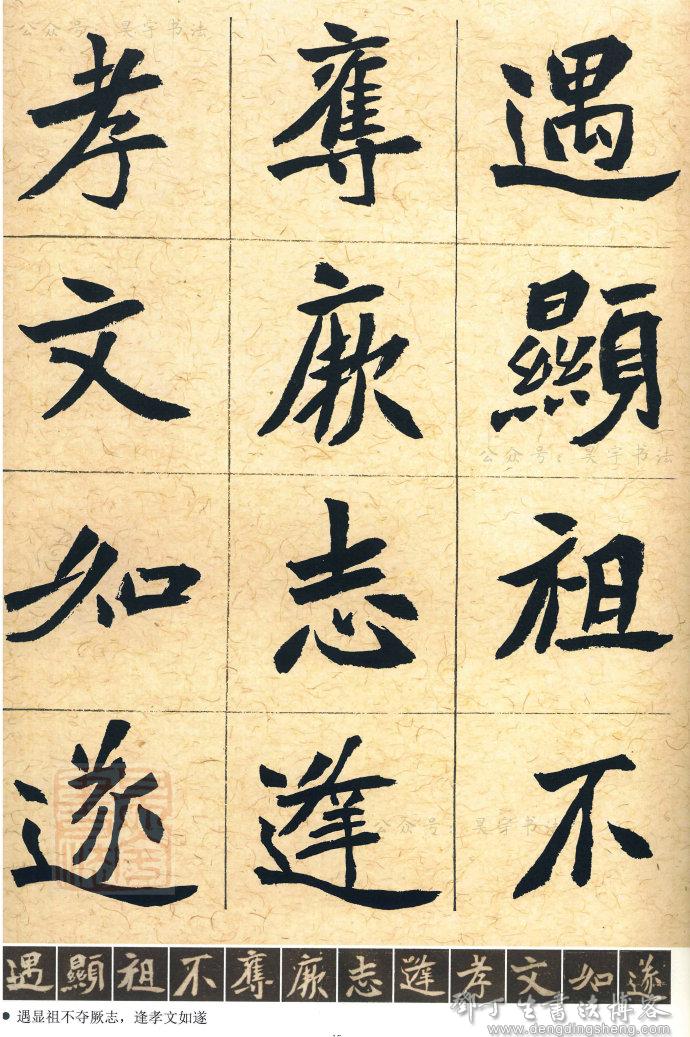 遇顯祖不
奪厥志逢
孝文如遂
遇顯祖不奪厥志逢孝文如遂
遇显祖不夺厥志，逢孝文如遂
公众号：昊宇书法
公众号：昊宇书法
公众号：昊宇书法
邓丁生书法博客
www.dengdingsheng.com